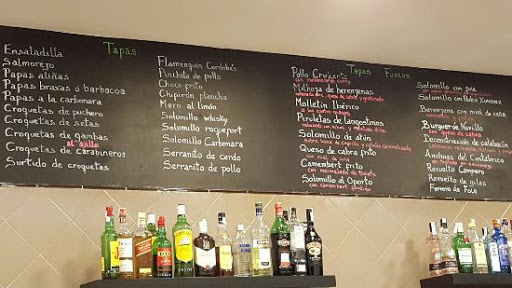 Tapas
Ensaladilla
Salmorejo
Papas aliñas
Papas bravas o barbacoa
Papas a la carbonara
Croquetas de puchero
Croquetas de setas
Croquetas de gambas
al ajillo
Croquetas de Carabineros
Surtido de croquetas
Flamenquin Cordobés
Pinchito de pollo
Choco frito
Chipirón plancha
Mero al limón
Solomillo whisky
Solomillo roquefort
Solomillo Carbonara
Serranito de cerdo
Serranito de pollo
Tapas Fusion
Pollo Crujiente
Milhoja de berenjenas
Molletin Ibérico
Piruletas de langostinos
Solomillo de atún
Queso de cabra frito
con miel de caña
Camembert frito
con mermelada de tomate
Solomillo al Oporto
con camembert fundido
Solomillo con pate
Solomillo con Pedro Ximenez
Berenjenas con miel de caña
Burguer de Novillo
Deconstrucción de calabacin
Anchoas del Cantabrico
Revuelto Campero
Revuelto de gulas
Ferrero de Foie